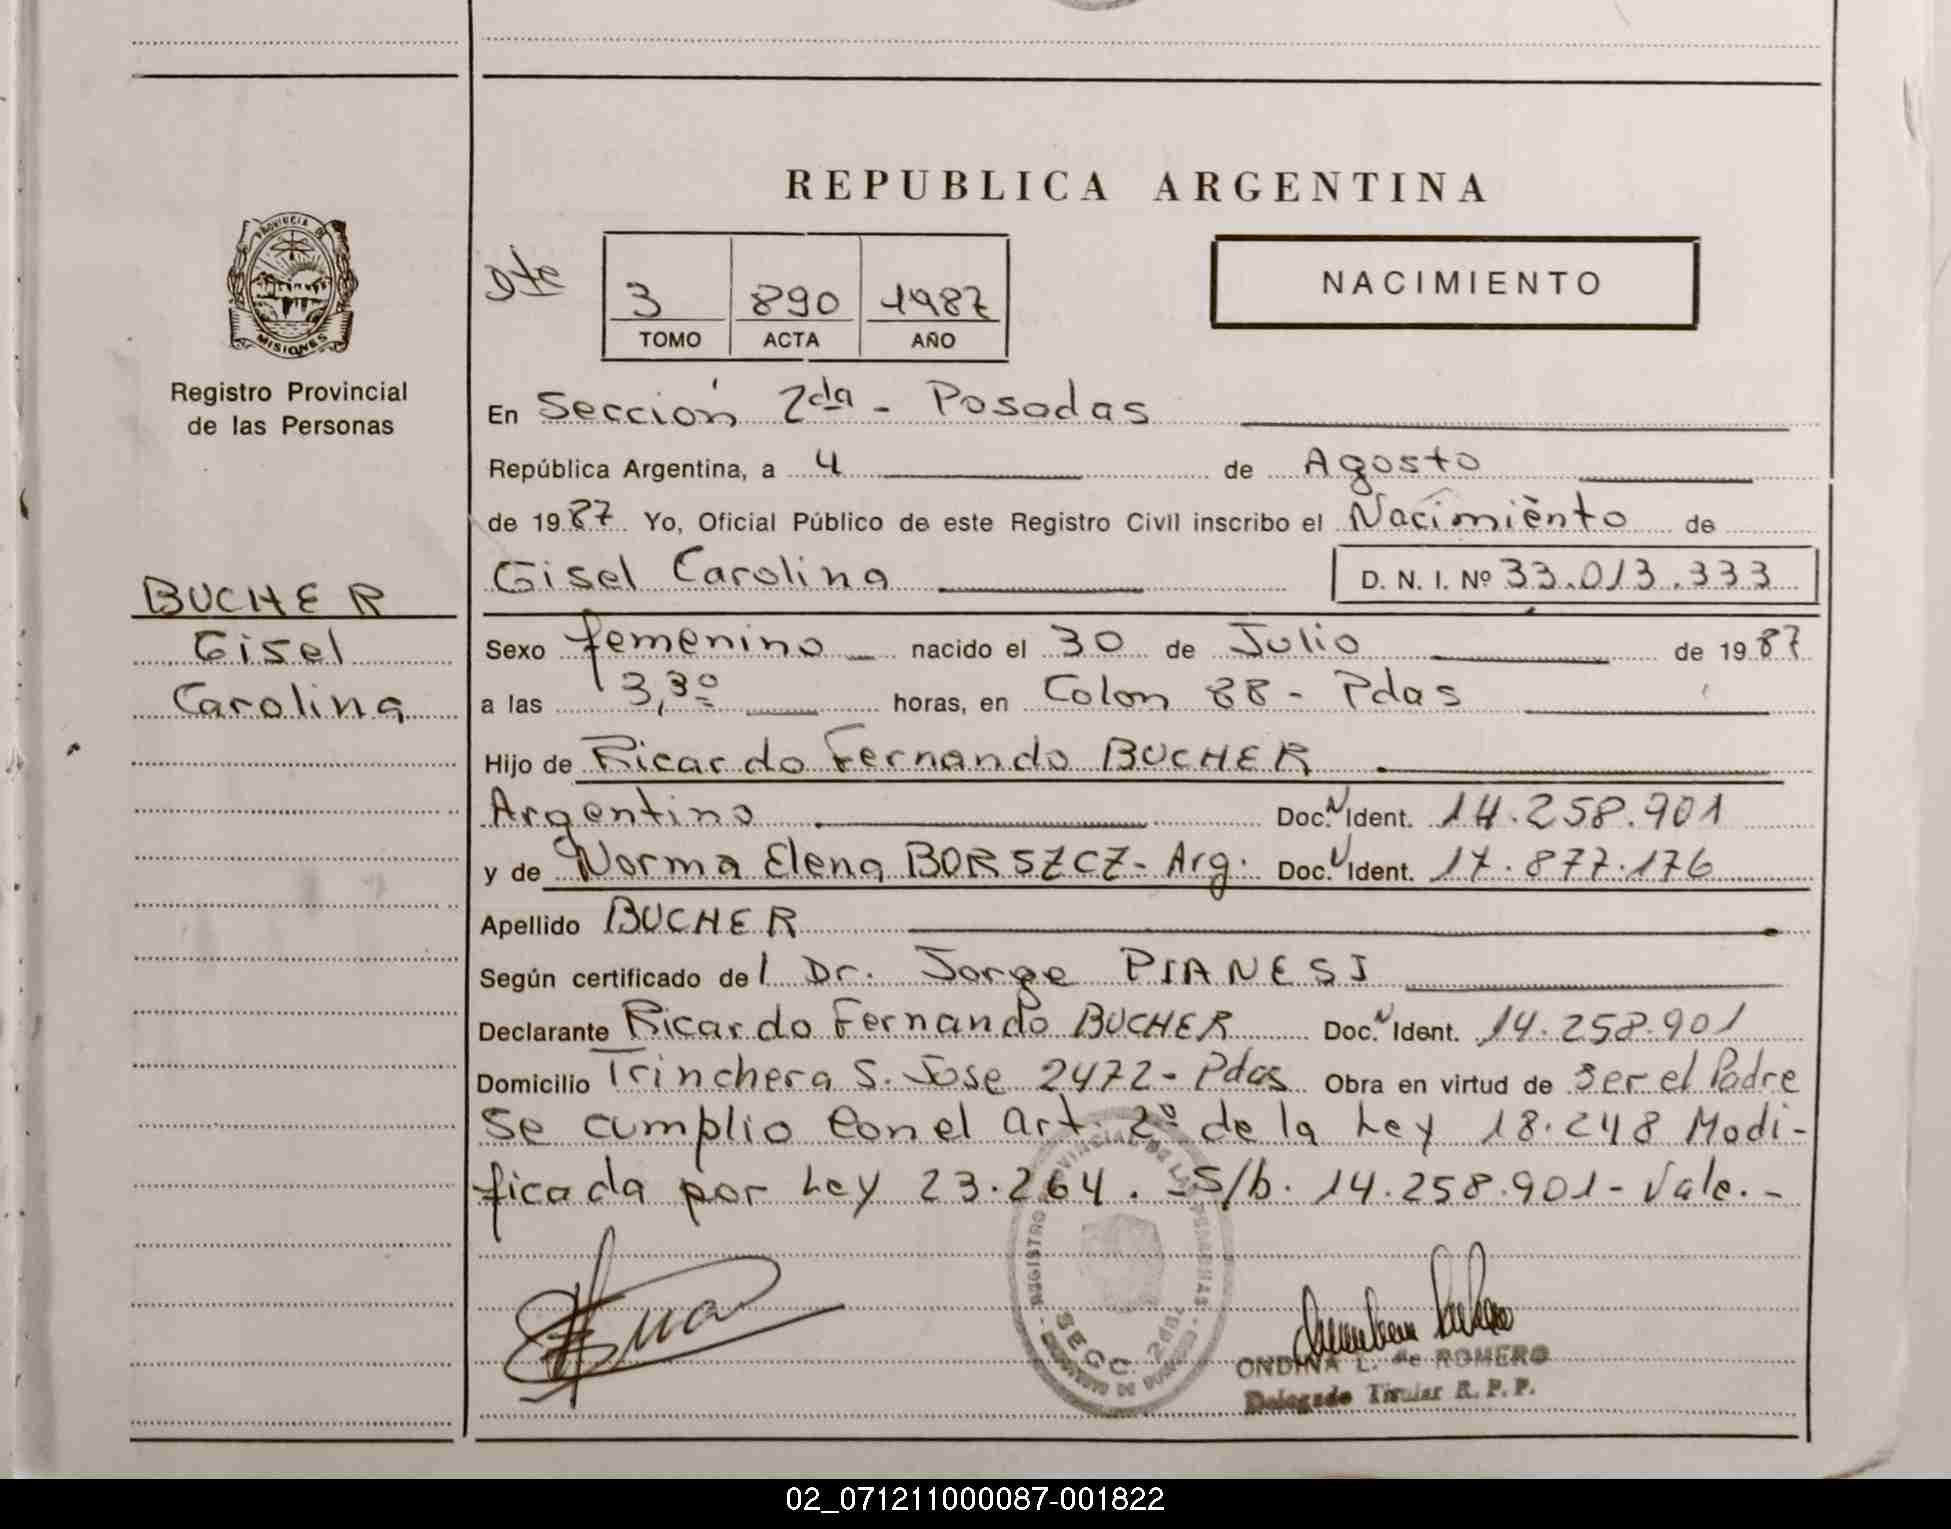 REPUBLICA ARGENTINA
PROVINCIA DE
MISIONES
Registro Provincial
de las Personas
Dte
3 890 1987
TOMO ACTA AÑO
NACIMIENTO
En Sección 2da - Posadas
República Argentina, a 4 de Agosto
de 1987 Yo, Oficial Público de este Registro Civil inscribo el Nacimiento de
Gisel Carolina D. N. I. Nº 33.013.333
BUCHER
Gisel
Carolina
Sexo femenino nacido el 30 de Julio de 1987
a las 3,30 horas, en Colon 88 - Pdas
Hijo de Ricardo Fernando BUCHER
Argentino Doc. N Ident. 14.258.901
y de Norma Elena BORSZCZ - Arg. Doc. N Ident. 17.877.176
Apellido BUCHER
Según certificado del Dr. Jorge PIANESI
Declarante Ricardo Fernando BUCHER Doc. N Ident. 14.258.901
Domicilio Trinchera S. Jose 2472 - Pdas Obra en virtud de Ser el Padre
Se cumplio con el art. 2º de la Ley 18.248 Modi-
ficada por Ley 23.264. - S/b. 14.258.901 - Vale. -
REGISTRO PROVINCIAL DE LAS PERSONAS
SECC. 2da.
ONDINA L. de ROMERO
Delegado Titular R. P. P.
02_071211000087-001822